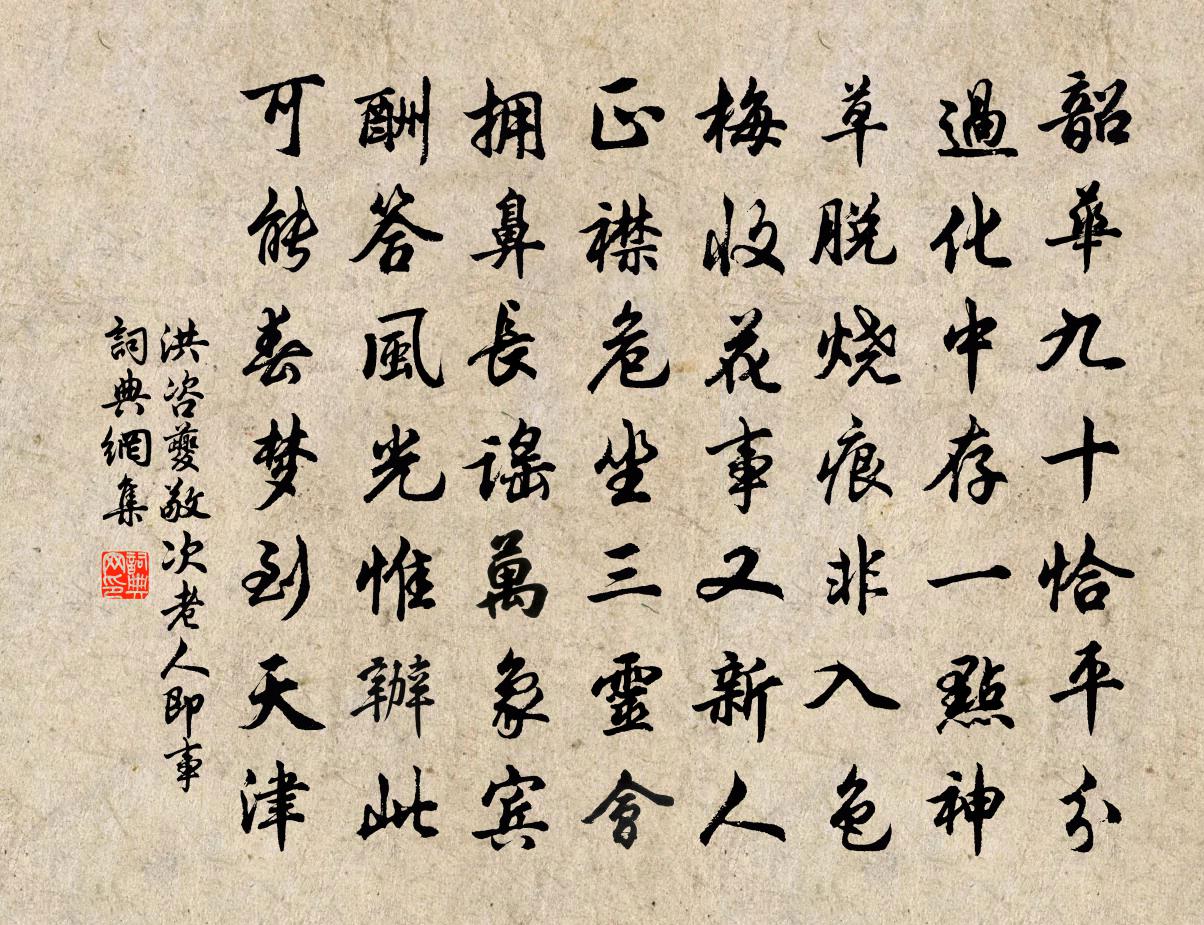 韶華九十恰平分
過化中存一點神
草脱烧痕非入色
梅收花事又新人
正襟危坐三靈會
拥鼻長谣萬象宾
酬答風光惟辦此
可能春梦到天津
洪咨夔敬次老人即事
詞典網集
詞典网印